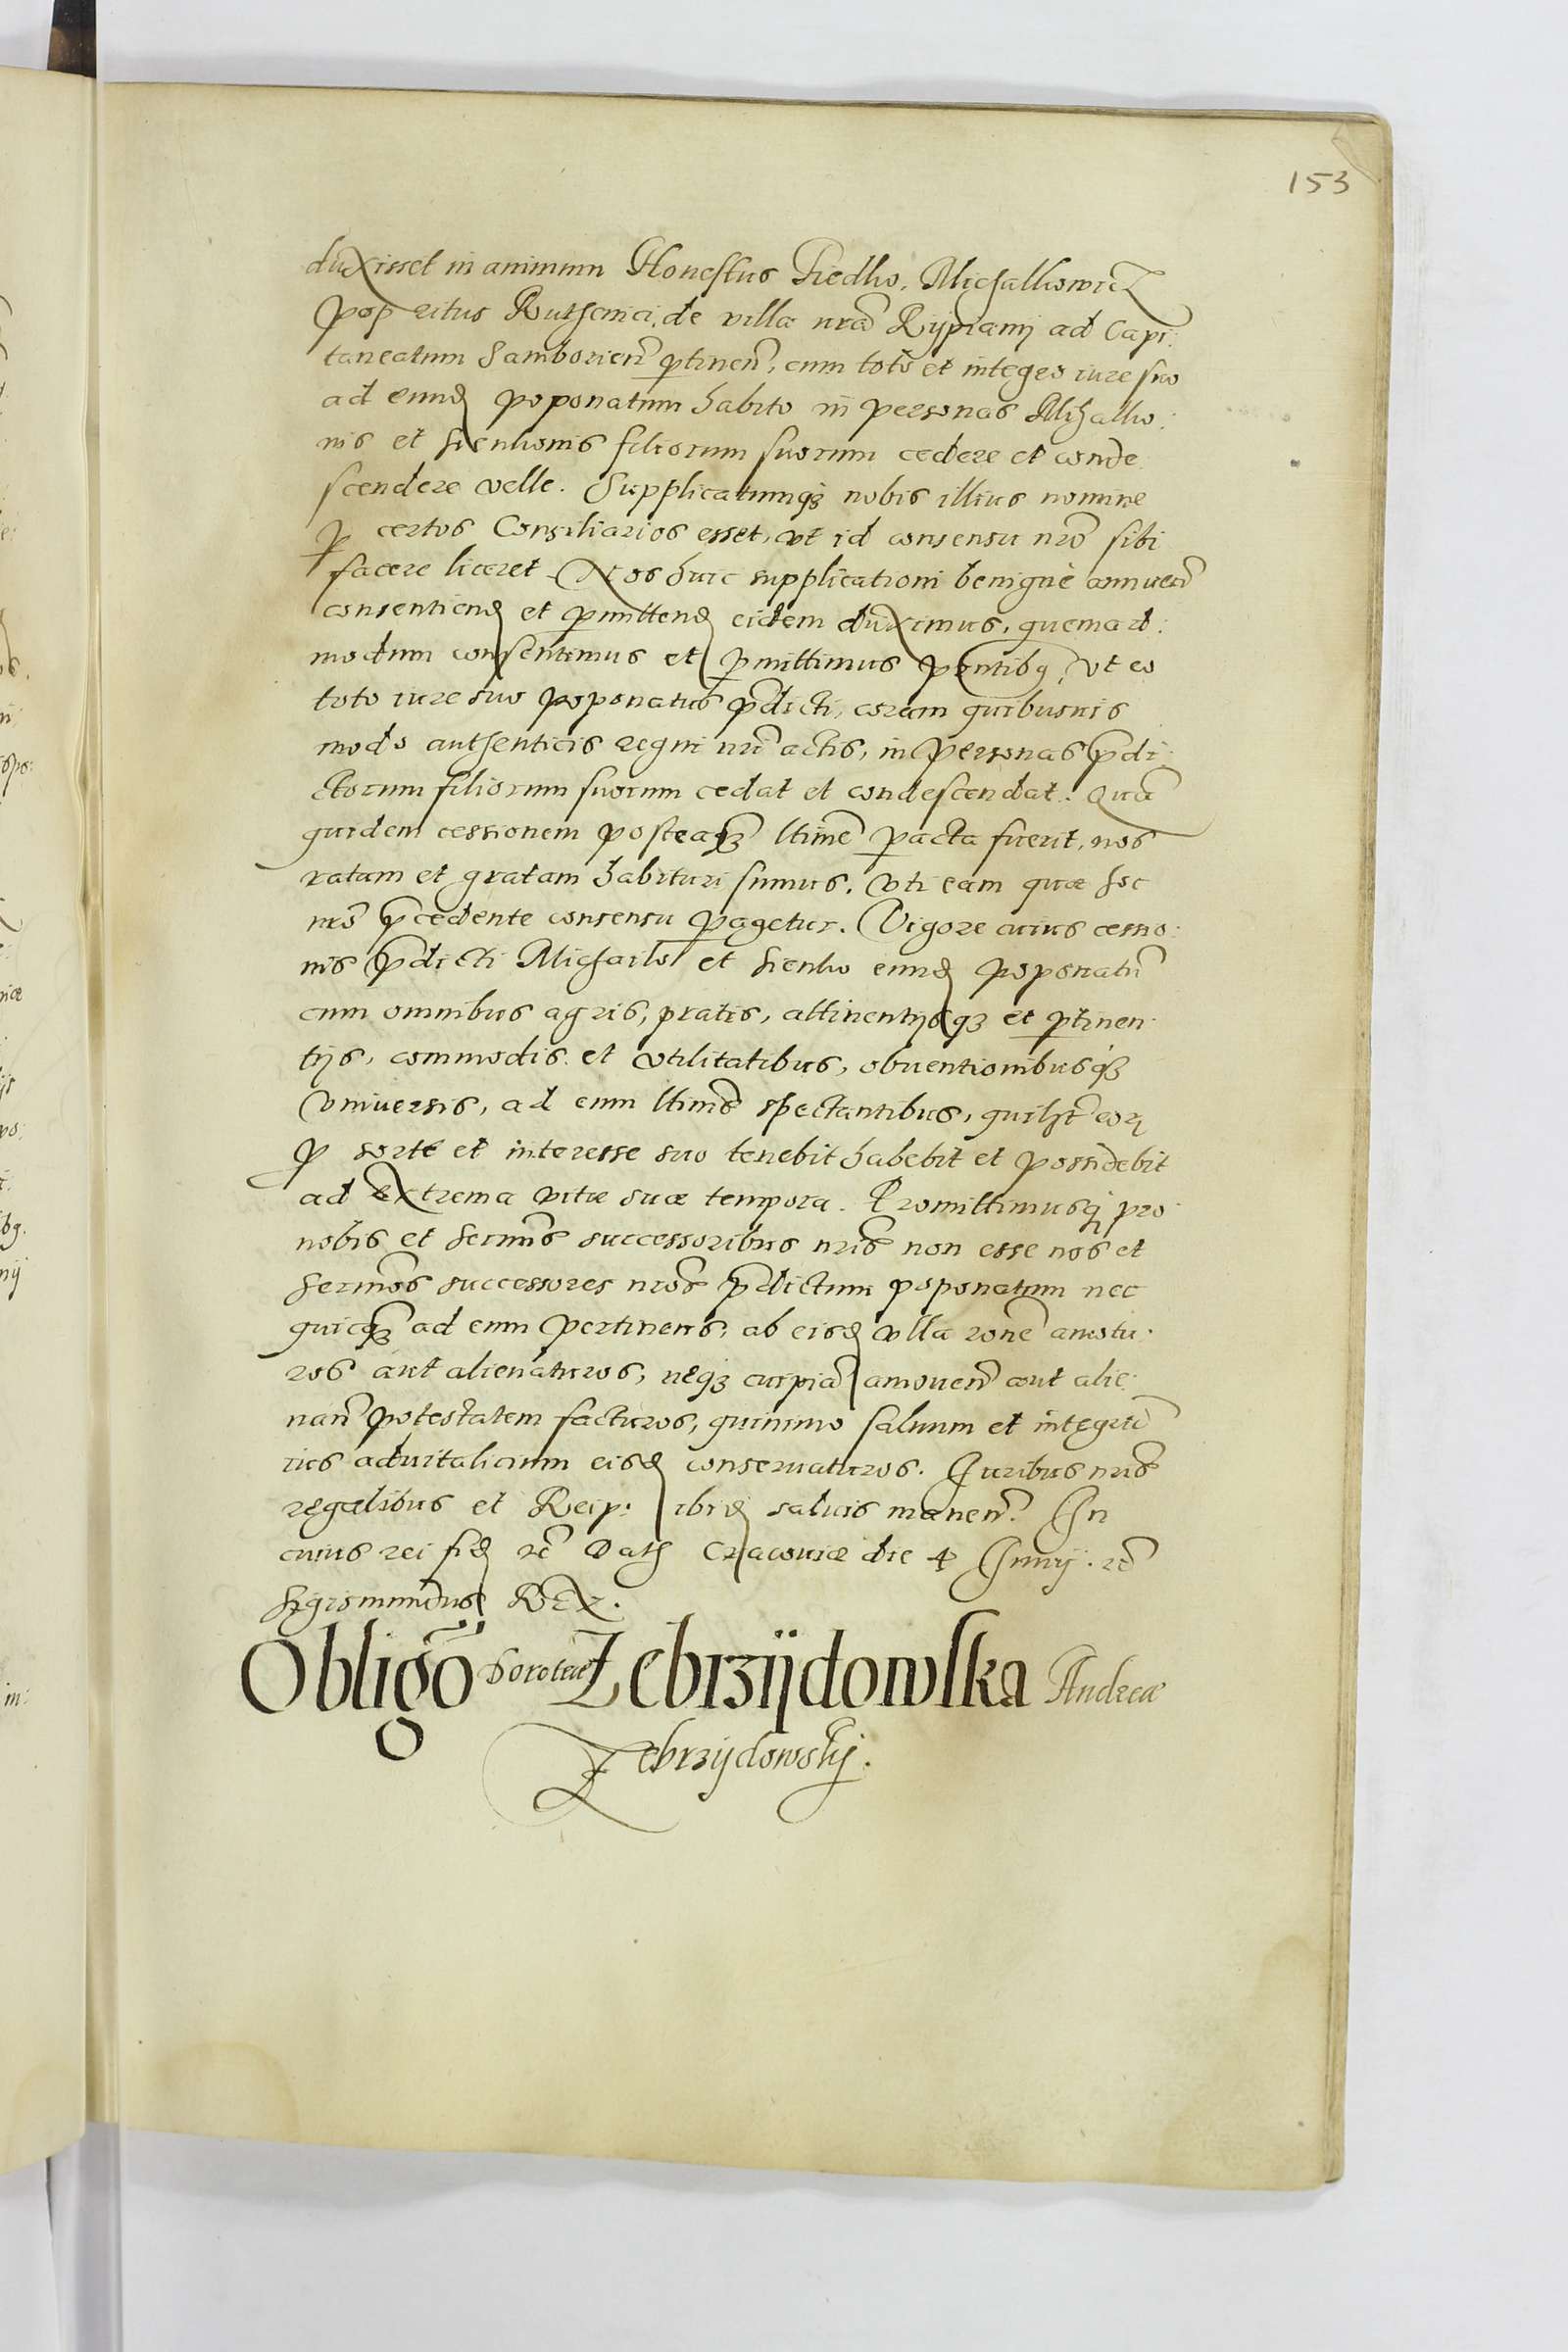 153
duxisset in animum Honestus Fiedko Michalkowicz
pop ritus Ruthenici, de villa nrã Rypiany ad Capi:
taneatum Samborien̄ ꝑtinen̄, cum toto et integro iure suo
ad eund poponatum habito in personas Mihalko:
nis et Sienkonis filiorum suorum cedere et conde
scendere velle. Supplicatumqȝ nobis illius nomine
ꝑ certos Consiliarios esset, vt id consensu nrõ sibi
facere liceret. Nos huic supplicationi benignè annuen̄
consentiend et ꝑmittend eidem duximus, quemad:
modum consentimus et ꝑmittimus pn̄tibq, vt eo
toto iure suo poponatus p̄dicti, coram quibusuis
modo authenticis regni nri actis, in personas p̄di:
ctorum filiorum suorum cedat et condescendat. Quã
quidem cessionem posteaqȝ ltimè ꝑacta fuerit, nos
ratam et gratam habituri sumus, vti eam quæ hoc
nrõ p̄cedente consensu ꝑagetur. Vigore cuius cessio:
nis p̄dicti Michailo et Sienko eund poponatũ
cum omnibus agris, pratis, attinentijsqȝ et ꝑtinen
tijs, commodis et vtilitatibus, obuentionibusqȝ
vniuersis, ad eum ltime spectantibus, quilꝫt eoꝝ
ꝓ sorte et interesse suo tenebit habebit et possidebit
ad extrema vitæ suæ tempora. Promittimusqȝ pro
nobis et sermis successoribus nris non esse nos et
sermos successores nros p̄dictum poponatum nec
quicqȝ ad eum pertinens, ab eisd vlla rone amotu:
ros aut alienaturos, neqȝ cuipiã amouen̄ aut alie:
nan̄ potestatem facturos, quinimo saluum et integrũ
ius aduitalicium eisd conseruaturos. Iuribus nris
regalibus et Reip: ibid saluis manen̄. In
cuius rei fid rc̃ Dat Cracouiæ die 4 Iunij. rc̃
Sigismundus Rex.
Obligõ Doroteæ Zebrzijdowska Andreæ
Zebrzijdowskij.